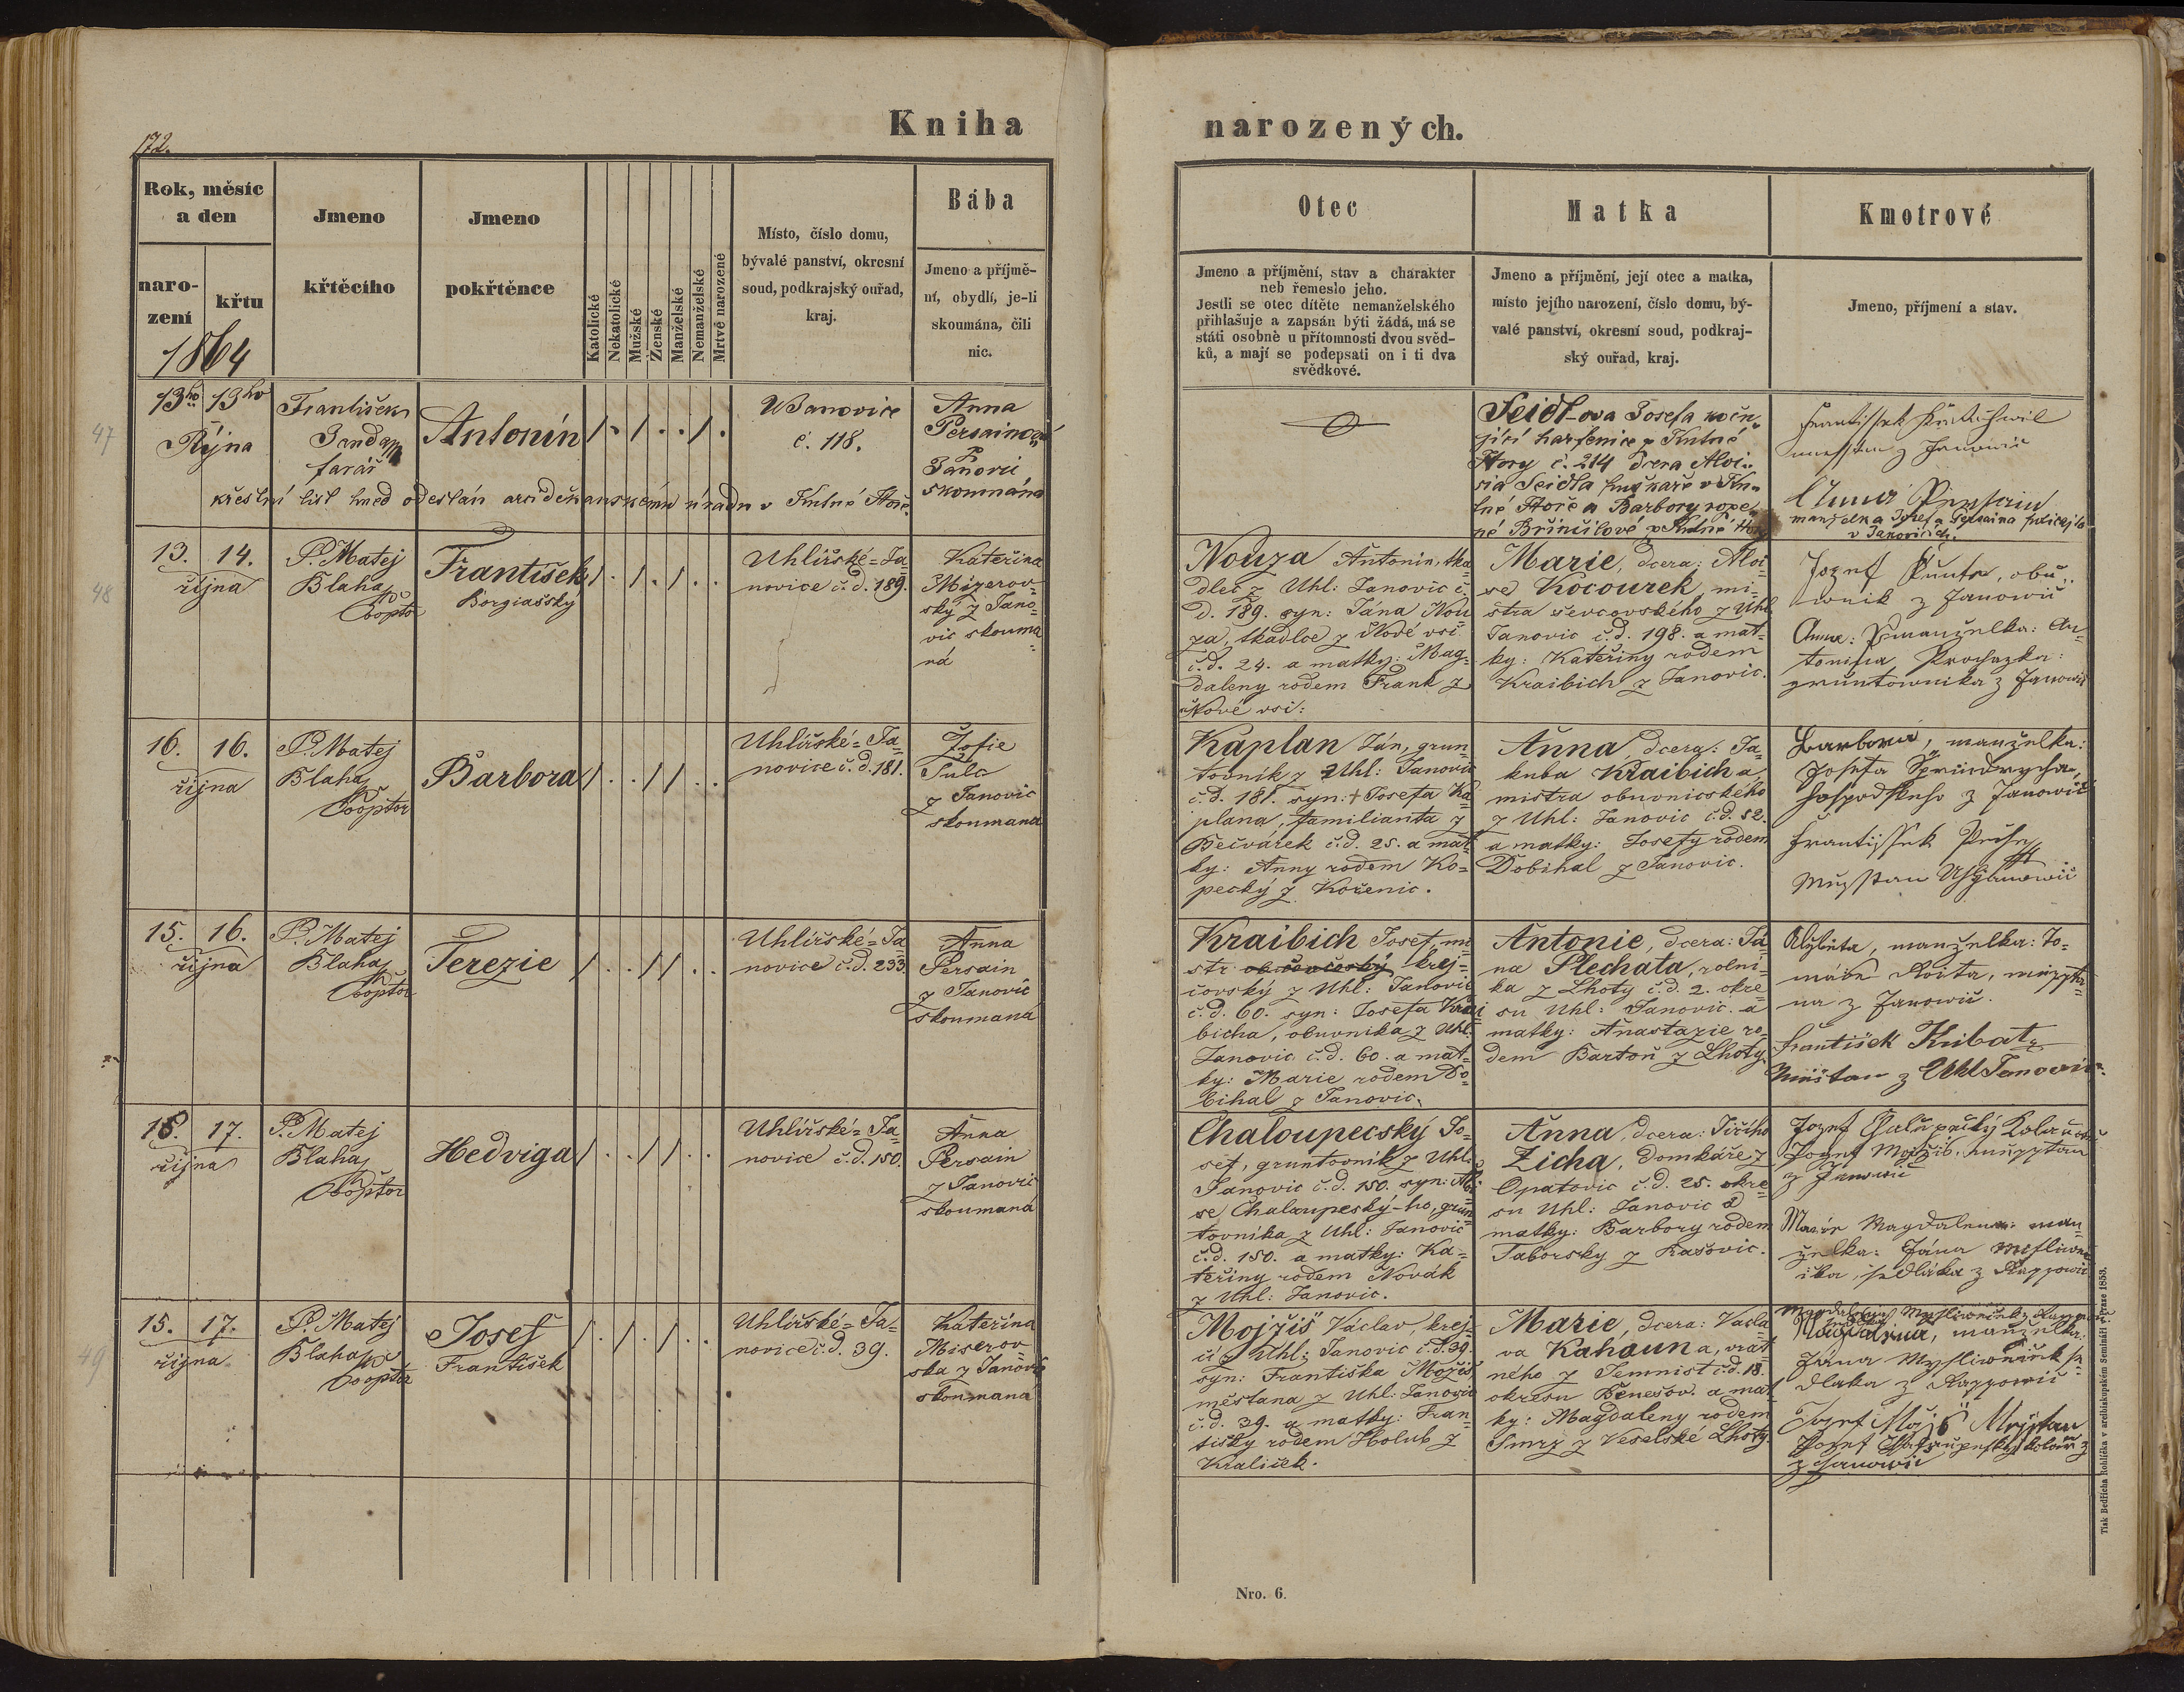 172.
Kniha
narozených.
Rok, měsíc
a den
naro-
zení
křtu
1864
Jmeno
křtěcího
Jmeno
pokřtěnce
Katolické
Nekatolické
Mužské
Ženské
Manželské
Nemanželské
Mrtvě narozené
Místo, číslo domu,
bývalé panství, okresní
soud, podkrajský ouřad,
kraj.
Bába
Jmeno a příjmě-
ní, obydlí, je-li
skoumána, čili
nic.
Otec
Jmeno a příjmění, stav a charakter
neb řemeslo jeho.
Jestli se otec dítěte nemanželského
přihlašuje a zapsán býti žádá, má se
státi osobně u přítomnosti dvou svěd-
ků, a mají se podepsati on i ti dva
svědkové.
Matka
Jmeno a příjmění, její otec a matka,
místo jejího narození, číslo domu, bý-
valé panství, okresní soud, podkraj-
ský ouřad, kraj.
Kmotrové
Jmeno, příjmení a stav.
47
13ho 13ho
Října
František
farář
Antonín
č. 118.
Anna
Persainova
z
Janovic
skoumána
křestní list hned odeslán arciděkanskému úřadu v Kutné Hoře.
Seidl-ova Josefa
harfenice z Kutné
Hory č. 214 dcera Aloi-
sia Seidla v Kut-
né Hoře a Barbory roze-
né v Kutné Hory
z Janowic
Anna Persain
manželka Josefa Persaina policajta
v Janovicích.
48
13. 14.
října
P. Matej
Blaha
Cooptor
František
Borgiašský
Uhlířské=Ja-
novice č.d. 189.
Kateřina
Mizerov-
ský z Jano-
vic skouma-
ná
Nouza Antonin, tka-
dlec z Uhl: Janovic č.
d. 189. syn: Jána Nou-
za, tkadlce z Nové vsi
č.d. 24. a matky: Mag-
daleny rodem Frank z
Nové vsi:
Marie, dcera: Aloi-
se Kocourek, mi-
stra ševcovského z Uhl
Janovic č.d. 198. a mat-
ky: Kateřiny rodem
Kraibich z Janovic.
Jozef Kunte, obu-
wnik z Janowic
Anna: manželka: An-
tonina Prochazka:
gruntownika z Janowic
16. 16.
října
P. Matej
Blaha
Cooptor
Barbora
Uhlířské=Ja-
novice č.d. 181.
Žofie
Šulc
z Janovic
skoumaná
Kaplan Ján, grun-
tovník z Uhl: Janovic
č.d. 181. syn: + Josefa Ka-
plana, familianta z
Bečvárek č.d. 25. a mat-
ky: Anny rodem Ko-
pecký z Kořenic.
Anna dcera: Ja-
kuba Kraibich a,
mistra obuvnického
z Uhl: Janovic č.d. 52.
a matky: Josefy rodem
Dobihal z Janovic.
Barbora, manželka:
Josefa
z Janowic
Frantissek
15. 16.
října
P. Matej
Blaha
Cooptor
Terezie
Uhlířské=Ja-
novice č.d. 233.
Anna
Persain
z Janovic
skoumaná
Kraibich Josef, mi-
str krej-
čovský z Uhl: Janovic
č.d. 60. syn: Josefa Krai-
bicha, obuvnika z Uhl:
Janovic č.d. 60. a mat-
ky: Marie rodem Do-
bihal z Janovic.
Antonie, dcera: Já-
na Plechata, rolní-
ka z Lhoty č.d. 2. okre-
su Uhl: Janovic. a
matky: Anastazie ro-
dem Bartoň z Lhoty.
Alžbeta, manželka: To-
máše
na z Janowic.
František Kubat
Mništan z Uhl Janovic.
16. 17.
října
P. Matej
Blaha
Cooptor
Hedviga
Uhlířské=Ja-
novice č.d. 150.
Anna
Persain
z Janovic
skoumaná
Chaloupecský Jo-
sef, gruntovník z Uhl.
Janovic č.d. 150. syn: Aloi-
se Chaloupeský-ho, grun-
tovníka z Uhl: Janovic
č.d. 150. a matky: Ka-
teřiny rodem Novák
z Uhl: Janovic.
Anna, dcera: Jiřího
Zicha, domkáře z
Opatovic č.d. 25. okre-
su Uhl: Janovic a
matky: Barbory rodem
Taborsky z Rašovic.
Jozef Chalupecký
z Janowic
Magdalena: man-
želka: Jána
sedláka z
49
15. 17.
října
P. Matej
Blaha
Cooptor
Josef
František
Uhlířské=Ja-
novice č.d. 39.
Kateřina
Miserov-
ska z Janovic
skoumaná
Mojžíš Václav, krej-
čí z Uhl: Janovic č.d. 39.
syn: Františka Mojžiš,
měsťana z Uhl: Janovic
č.d. 39. a matky: Fran-
tišky rodem Holub z
Kraliček.
Marie, dcera: Václa-
va Kahaun a, vrát-
ného z Jemnist č.d. 18.
okresu Benešov. a mat-
ky: Magdaleny rodem
Smrz z Veselské Lhoty.
Magdalena, manželka:
Jána Mysliweček se-
dlaka z
Jozef Mojžiš
Jozef Chalaupesky kolař z
z Janowic
Nro. 6.
Tisk Bedřicha Rohlíčka v arcibiskupském Semináři v Praze 1853.